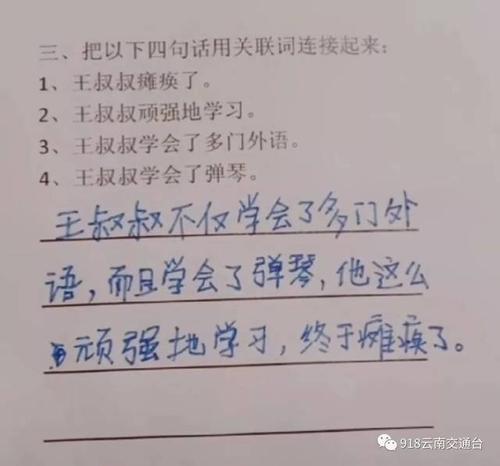 三、把以下四句话用关联词连接起来：
1、王叔叔瘫痪了。
2、王叔叔顽强地学习。
3、王叔叔学会了多门外语。
4、王叔叔学会了弹琴。
王叔叔不仅学会了多门外
语，而且学会了弹琴，他这么
顽强地学习，终于瘫痪了。
918云南交通台